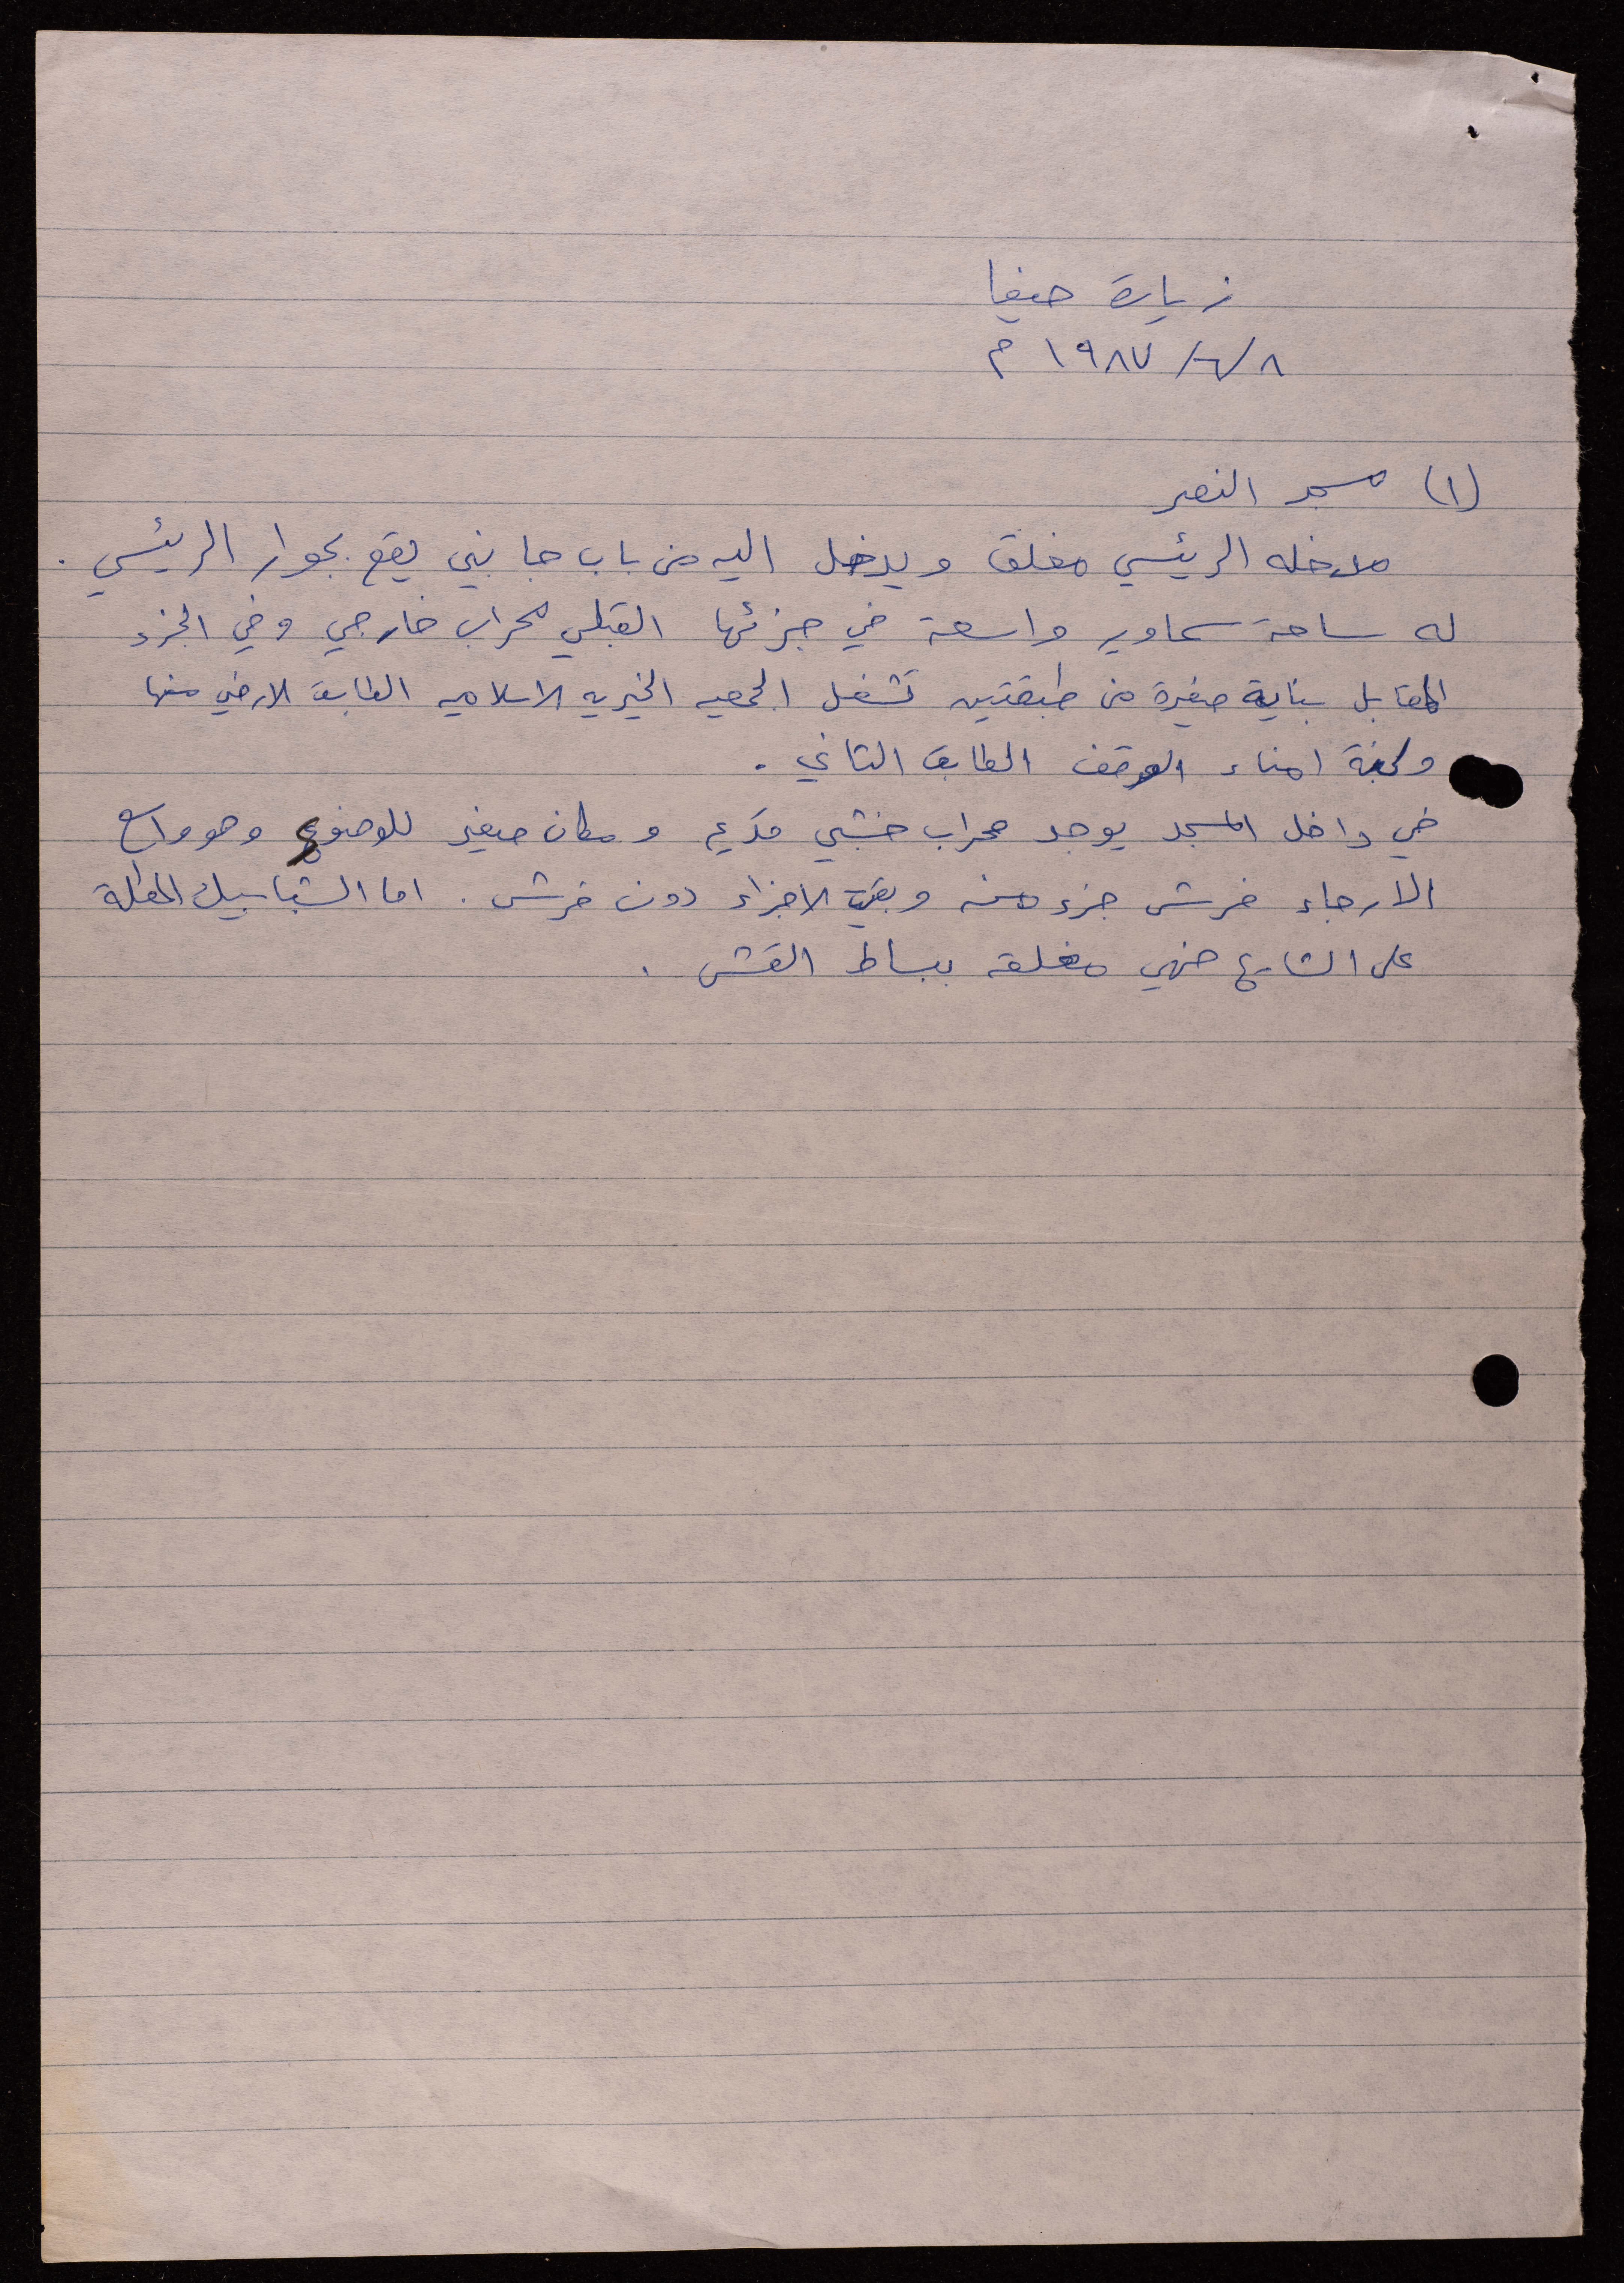 زيارة حيفا
٨/٦/١٩٨٧ م
(١) مسجد النصر
مدخله الرئيسي مغلق ويدخل اليه من باب جانبي يقع بجوار الرئيسي .
له ساحة سماوية واسعة في جزئها القبلي محراب خارجي وفي الجزء
المقابل بناية صغيرة من طبقتين تشغل الجمعيه الخيريه الاسلاميه الطابق الارضي منها
ولجنة امناء الوقف الطابق الثاني .
في داخل المسجد يوجد محراب خشبي قديم ومكان صغير للوضوء وهو واسع
الارجاء فرش جزء منه وبقية الاجزاء دون فرش . اما الشبابيك المطلة
على الشارع فهي مغلقه ببساط القش .